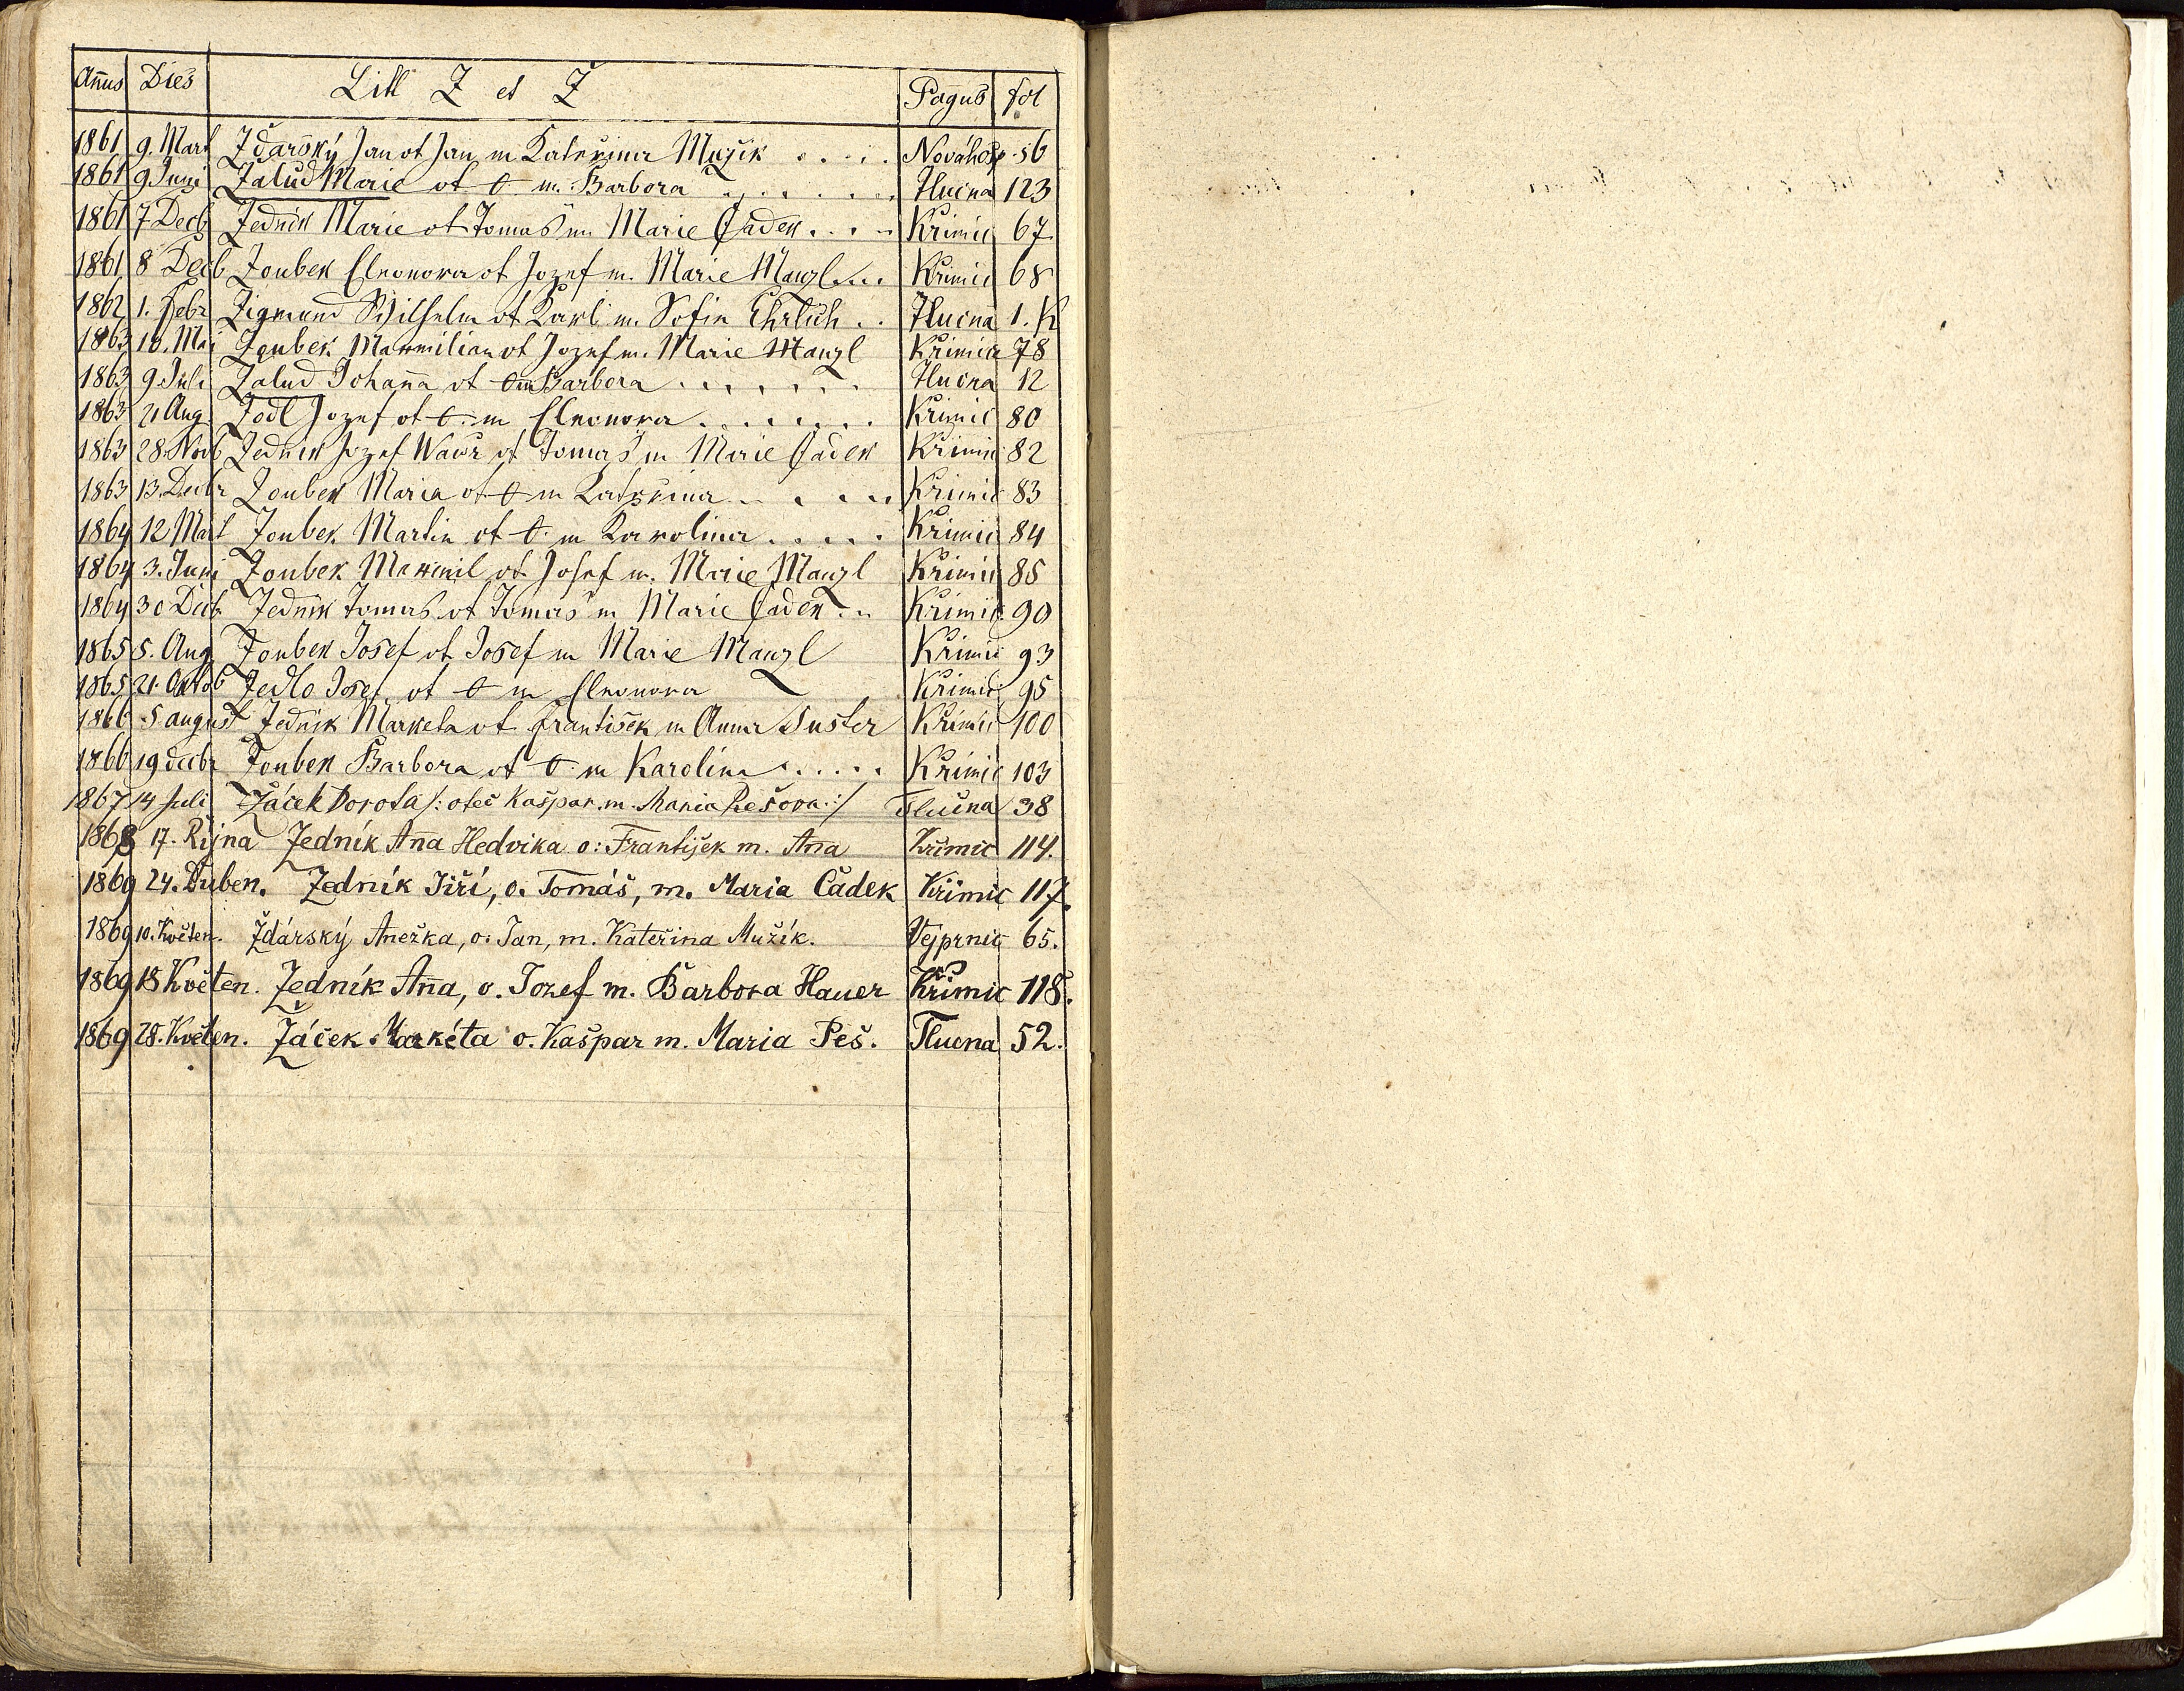 Annus Dies Litt Z et Ž Pagus fol
1861 9. Mart Žďarský Jan ot Jan m Kateřina Mužik . . . . Nováhosp. 56
1861 9 Juni Žalud Marie ot O m. Barbora . . . . . Tlucna 123
1861 7 Decb Zednik Marie ot Tomaš m Marie Čadek . . . Krimic 67
1861 8 Decb Zoubek Eleonora ot Jozef m. Marie Manzl . . . Krimic 68
1862 1. Febr Zigmund Wilhelm ot Karl m. Sofie Ehrlich . . Tlucna 1. K
1863 10. Mai Zoubek Maxmilian ot Jozef m. Marie Manzl Krimic 78
1863 9 Juli Žalud Johana ot O m Barbora . . . . . . Tlucna 12
1863 21 Aug Zodl Jozef ot O. m Eleonora . . . . . . . Krimic 80
1863 28. Novb Zednik Jozef Wawr ot Tomaš m Marie Čadek Krimic 82
1863 13. Decbr Zoubek Maria ot O m Kateřina . . . . . Krimic 83
1864 12 Mart Zoubek Martin ot O. m Karolina . . . . . Krimic 84
1864 3. Juni Zoubek Maxmil ot Josef m. Marie Manzl Krimic 85
1864 30 Decb Zednik Tomaš ot Tomaš m Marie Čadek . . Krimic 90
1865 5. Aug Zoubek Josef ot Josef m Marie Manzl Krimic 93
1865 21. Oktob Zedlo Josef ot O m Eleonora Krimic 95
1866 5 august Zednik Marketa ot František m Anna Šuster Krimic 100
1866 19 decbr Zoubek Barbora ot O. m Karolina . . . . . Krimic 103
1867 14 Juli Žáček Dorota /: otec Kašpar. m. Maria Pešova :/ Tlučna 38
1868 17. Rijna Zedník Aña Hedvika o: František m. Aña Křimic 114.
1869 24. Duben. Zedník Jiří, o. Tomáš, m. Maria Čadek Křimic 117.
1869 10. Květen. Žďárský Anežka, o. Jan, m. Kateřina Mužík. Vejprnic 65.
1869 18 Květen. Zedník Aña, o. Jozef m. Barbora Hauer Křimic 118.
1869 28. Květen. Žáček Markéta o. Kašpar m. Maria Peš. Tlucna 52.